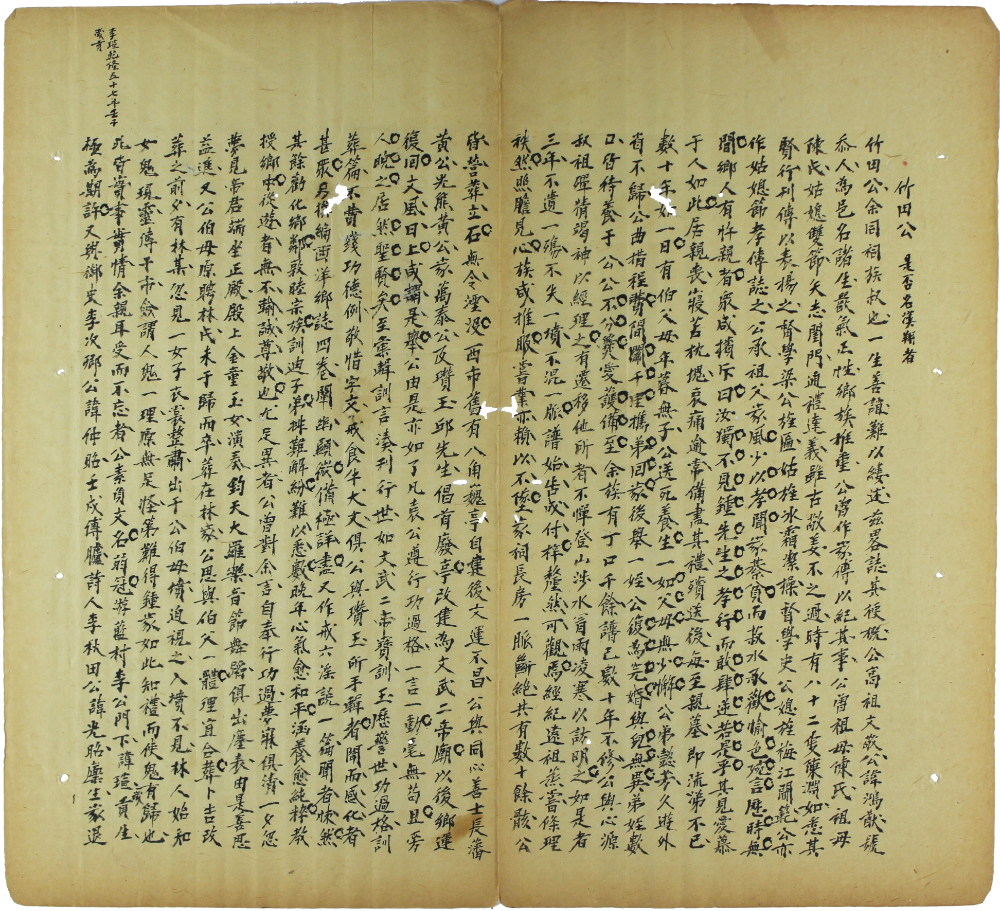 竹田公 是否名漢翰者
竹田公余同祠族叔也一生善誼難以縷述茲畧誌其梗概公高祖文敬公諱鴻猷號
忝人為邑名諸生嚴氣正性鄉族推重公嘗作家傳以紀其事公曾祖母陳氏祖母
陳氏姑媳雙節矢志閨門通禮達義雖古敬姜不之過時有八十二叟藥澗如悉其
賢行列傳以表揚之督學梁公旌匾姑旌氷霜潔操督學史公媳旌梅江閫範公亦
作姑媳節孝傳誌之公承祖父家風少以孝聞家綦貧而菽水承歡愉色婉言歷時無
間鄉人有忤親者衆咸擯斥曰汝獨不見鍾先生之孝行而敢肆逆若是乎其見愛慕
于人如此居親喪寢苫枕塊哀痛逾常備盡其禮殯送後每至親墓即流涕不已
數十年如一日有伯父母年暮無子公送死養生一如父母無少懈公弟懿芳久遊外
省不歸公曲措程費間關千里攜弟回家後舉一姪公復為完婚與兒無異弟姪數
口皆待養于公公不分爨愛護備至余族有丁口千餘譜已數十年不修公與心源
叔祖殫精竭神以經理之有遷移他所者不憚登山涉水冒雨凌寒以訪明之如是者
三年不遺一塲不失一墳不混一脈譜始告成付梓釐然可觀焉經紀遠祖烝嘗條理
秩然照膽見心族咸推服嘗業亦賴以不墜家祠長房一脈斷絕共有數十餘骸公
皆營葬立石無令湮沒西市舊有八角亭自建後文運不昌公與同心善士長藩
黃公光熊黃公家萬泰公及瓚玉邱先生倡首廢亭改建為文武二帝廟以後鄉運
復回文風日上咸謂是舉公由是亦如了凡袁公遵行功過格一言一動毫無苟且旁
人睨之居然聖賢矣至彙輯訓言湊刊行世如文武二帝寶訓玉歷警世功過格訓
葬篇不費錢功德例敬惜字文戒食牛犬文俱公與瓚玉所手輯者聞而感化者
甚眾另採綸西洋鄉誌四卷闡幽顯微備極詳盡又作戒六淫說一篇聞者悚然
其餘勸化鄉鄰敦睦宗族訓迪子弟排難解紛難以悉數晚年心氣愈和平涵養愈純粹教
授鄉中從遊者無不輸誠尊敬也尤足異者公曾對余言自奉行功過夢寐俱清一夕忽
夢見帝君端坐正殿殿上金童玉女演奏鈞天大羅樂音節舞蹈俱出塵表由是善思
益進又公伯母原聘林氏未于歸而卒葬在林家公思與伯父一體理宜合葬卜吉改
葬之前夕有林某忽見一女子衣裳整肅出于公伯母墳迫視之入墳不見林人始知
女鬼現靈傳于市僉謂人鬼一理原無足怪第難得鍾家如此知禮而使鬼有歸也
凡皆實事實情余親耳受而不忘者公素負文名弱冠游藍村李公門下諱瑄貢生
極為期許又與鄉史李次鄉公諱仲貽壬戌傅臚詩人李秋田公諱光昭廩生家退
李瑄乾隆五十七年壬子
歲貢